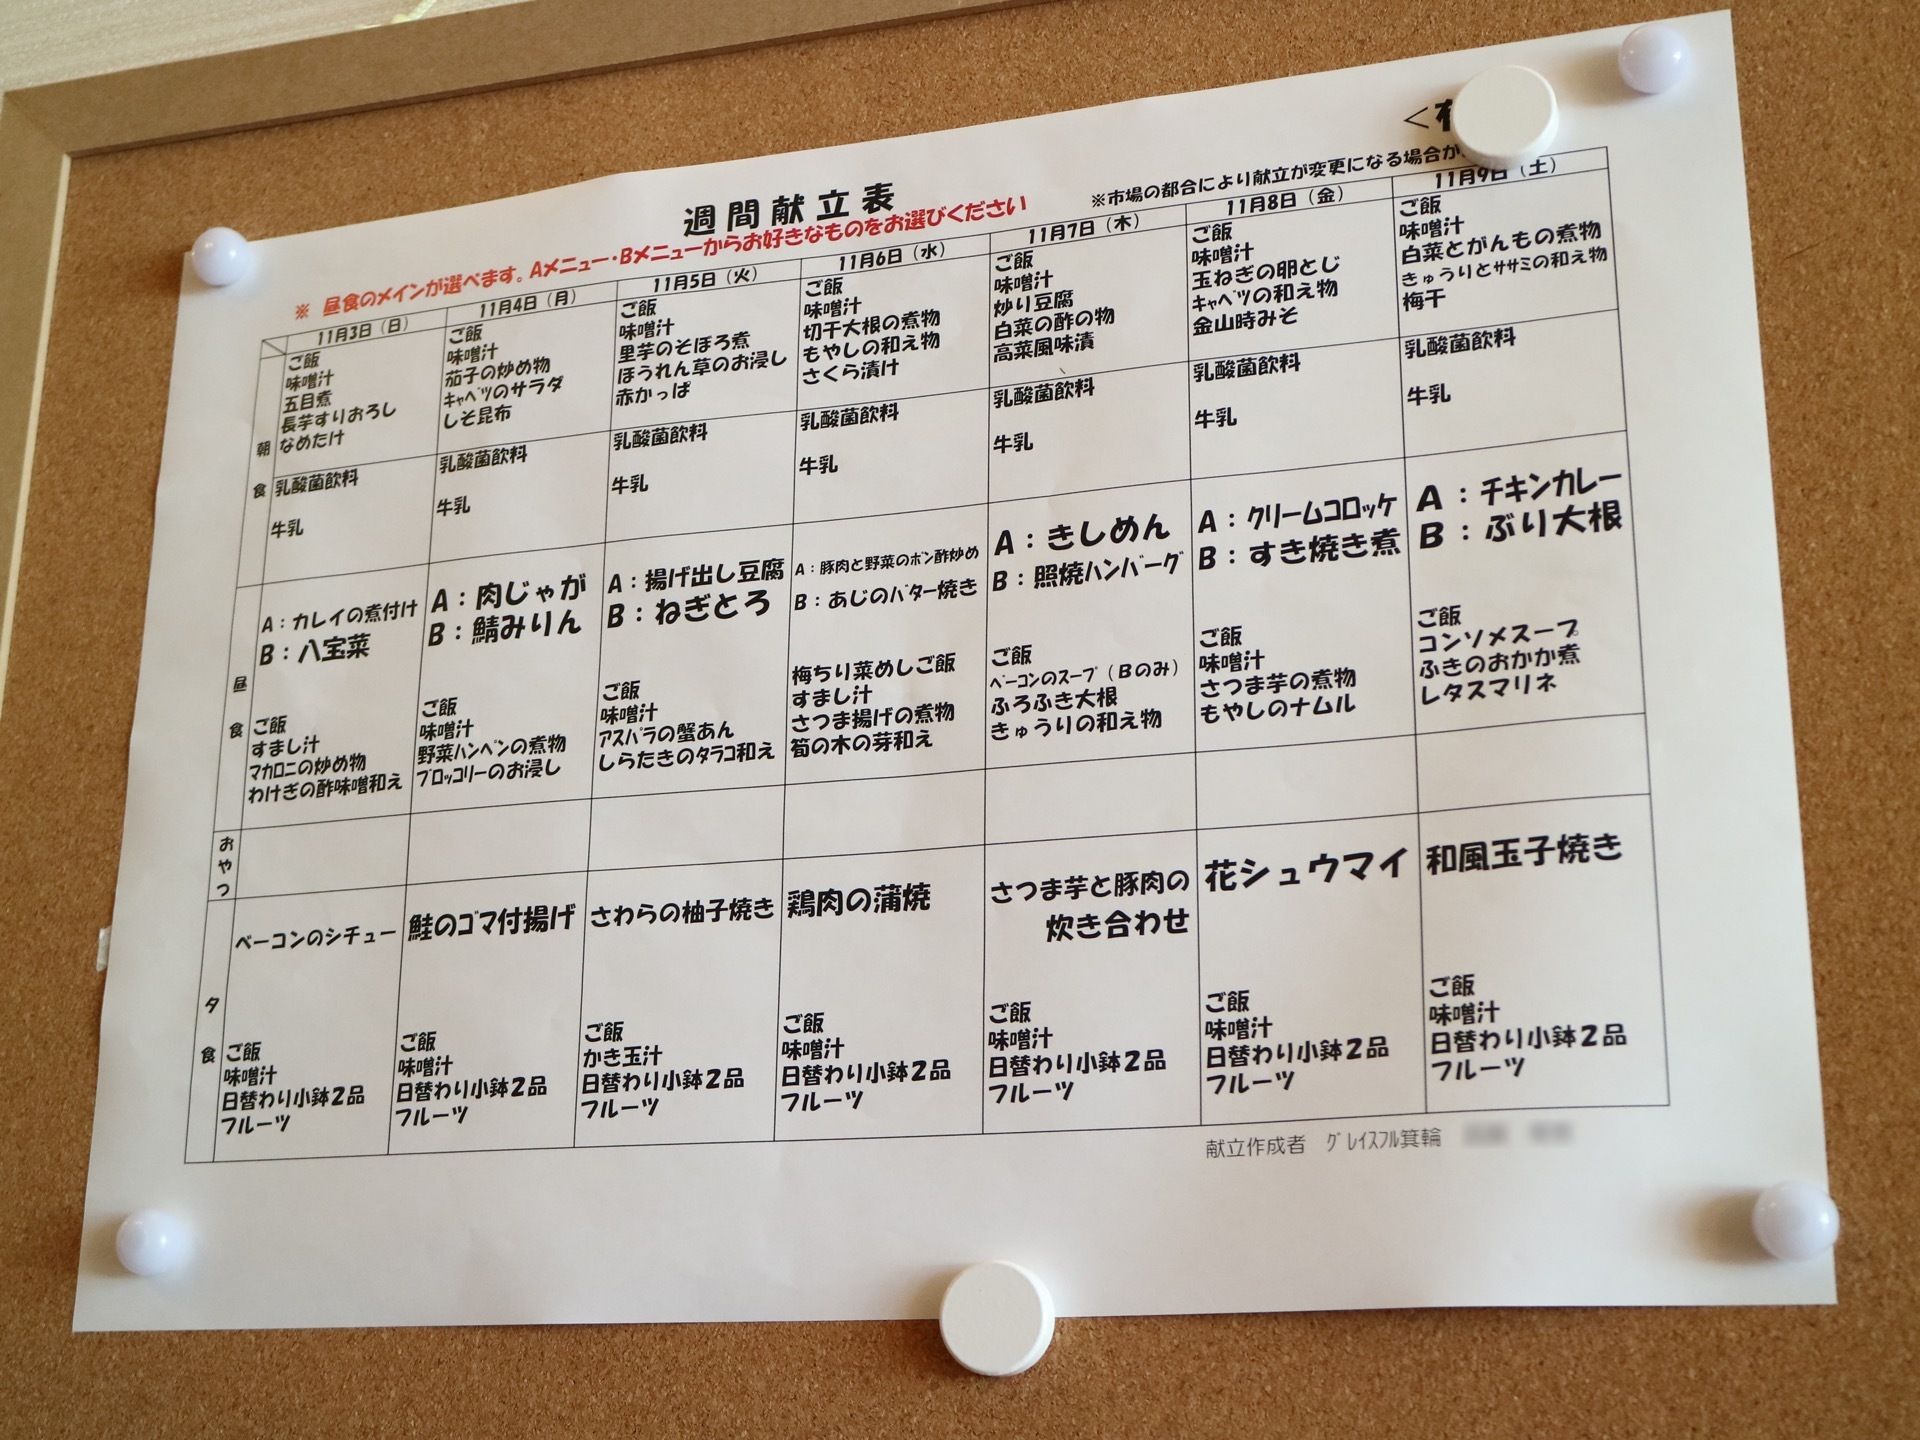 <
週間献立表
※市場の都合により献立が変更になる場合が
※ 昼食のメインが選べます。Aメニュー・Bメニューからお好きなものをお選びください
11月3日（日）
11月4日（月）
11月5日（火）
11月6日（水）
11月7日（木）
11月8日（金）
11月9日（土）
朝食
ご飯
味噌汁
五目煮
長芋すりおろし
なめたけ
乳酸菌飲料
牛乳
ご飯
味噌汁
茄子の炒め物
キャベツのサラダ
しそ昆布
乳酸菌飲料
牛乳
ご飯
味噌汁
里芋のそぼろ煮
ほうれん草のお浸し
赤かっぱ
乳酸菌飲料
牛乳
ご飯
味噌汁
切干大根の煮物
もやしの和え物
さくら漬け
乳酸菌飲料
牛乳
ご飯
味噌汁
炒り豆腐
白菜の酢の物
高菜風味漬
乳酸菌飲料
牛乳
ご飯
味噌汁
玉ねぎの卵とじ
キャベツの和え物
金山時みそ
乳酸菌飲料
牛乳
ご飯
味噌汁
白菜とがんもの煮物
きゅうりとササミの和え物
梅干
乳酸菌飲料
牛乳
昼食
A：カレイの煮付け
B：八宝菜
ご飯
すまし汁
マカロニの炒め物
わけぎの酢味噌和え
A：肉じゃが
B：鯖みりん
ご飯
味噌汁
野菜ハンペンの煮物
ブロッコリーのお浸し
A：揚げ出し豆腐
B：ねぎとろ
ご飯
味噌汁
アスパラの蟹あん
しらたきのタラコ和え
A：豚肉と野菜のポン酢炒め
B：あじのバター焼き
梅ちり菜めしご飯
すまし汁
さつま揚げの煮物
筍の木の芽和え
A：きしめん
B：照焼ハンバーグ
ご飯
ベーコンのスープ（Bのみ）
ふろふき大根
きゅうりの和え物
A：クリームコロッケ
B：すき焼き煮
ご飯
味噌汁
さつま芋の煮物
もやしのナムル
A：チキンカレー
B：ぶり大根
ご飯
コンソメスープ
ふきのおかか煮
レタスマリネ
おやつ
夕食
ベーコンのシチュー
ご飯
味噌汁
日替わり小鉢2品
フルーツ
鮭のゴマ付揚げ
ご飯
味噌汁
日替わり小鉢2品
フルーツ
さわらの柚子焼き
ご飯
かき玉汁
日替わり小鉢2品
フルーツ
鶏肉の蒲焼
ご飯
味噌汁
日替わり小鉢2品
フルーツ
さつま芋と豚肉の
炊き合わせ
ご飯
味噌汁
日替わり小鉢2品
フルーツ
花シュウマイ
ご飯
味噌汁
日替わり小鉢2品
フルーツ
和風玉子焼き
ご飯
味噌汁
日替わり小鉢2品
フルーツ
献立作成者 グレイスフル箕輪